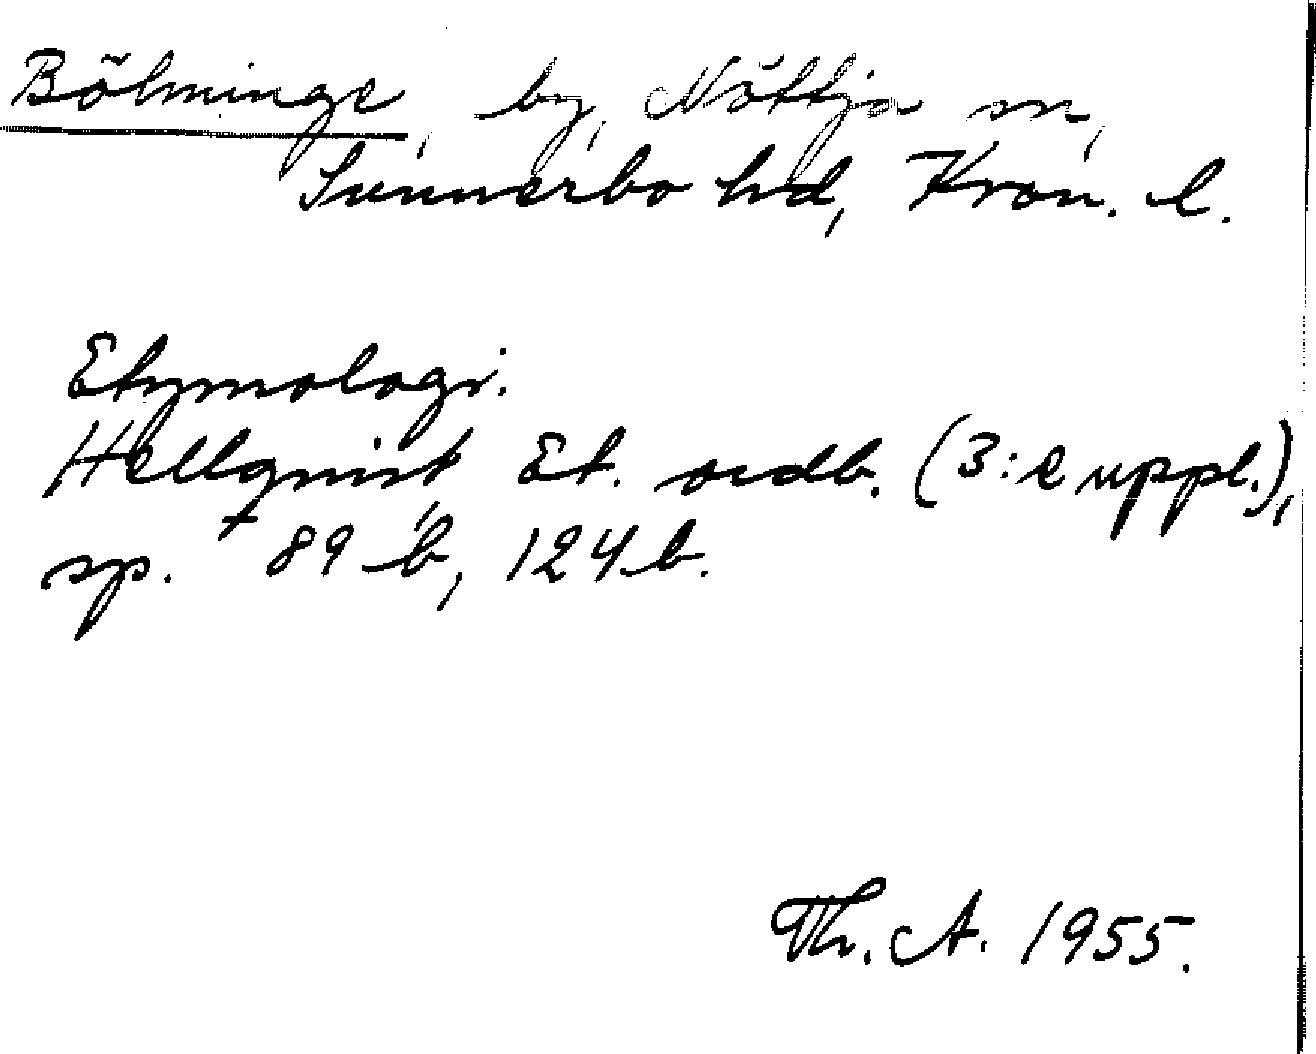 Bölminge, by, Nöttja sn,
Sunnerbo hd, Kron. l.
Etymologi.
Hellquist, Et. ordb. (3:e uppl.),
sp. 89 b, 124 b.
Th. A. 1955.